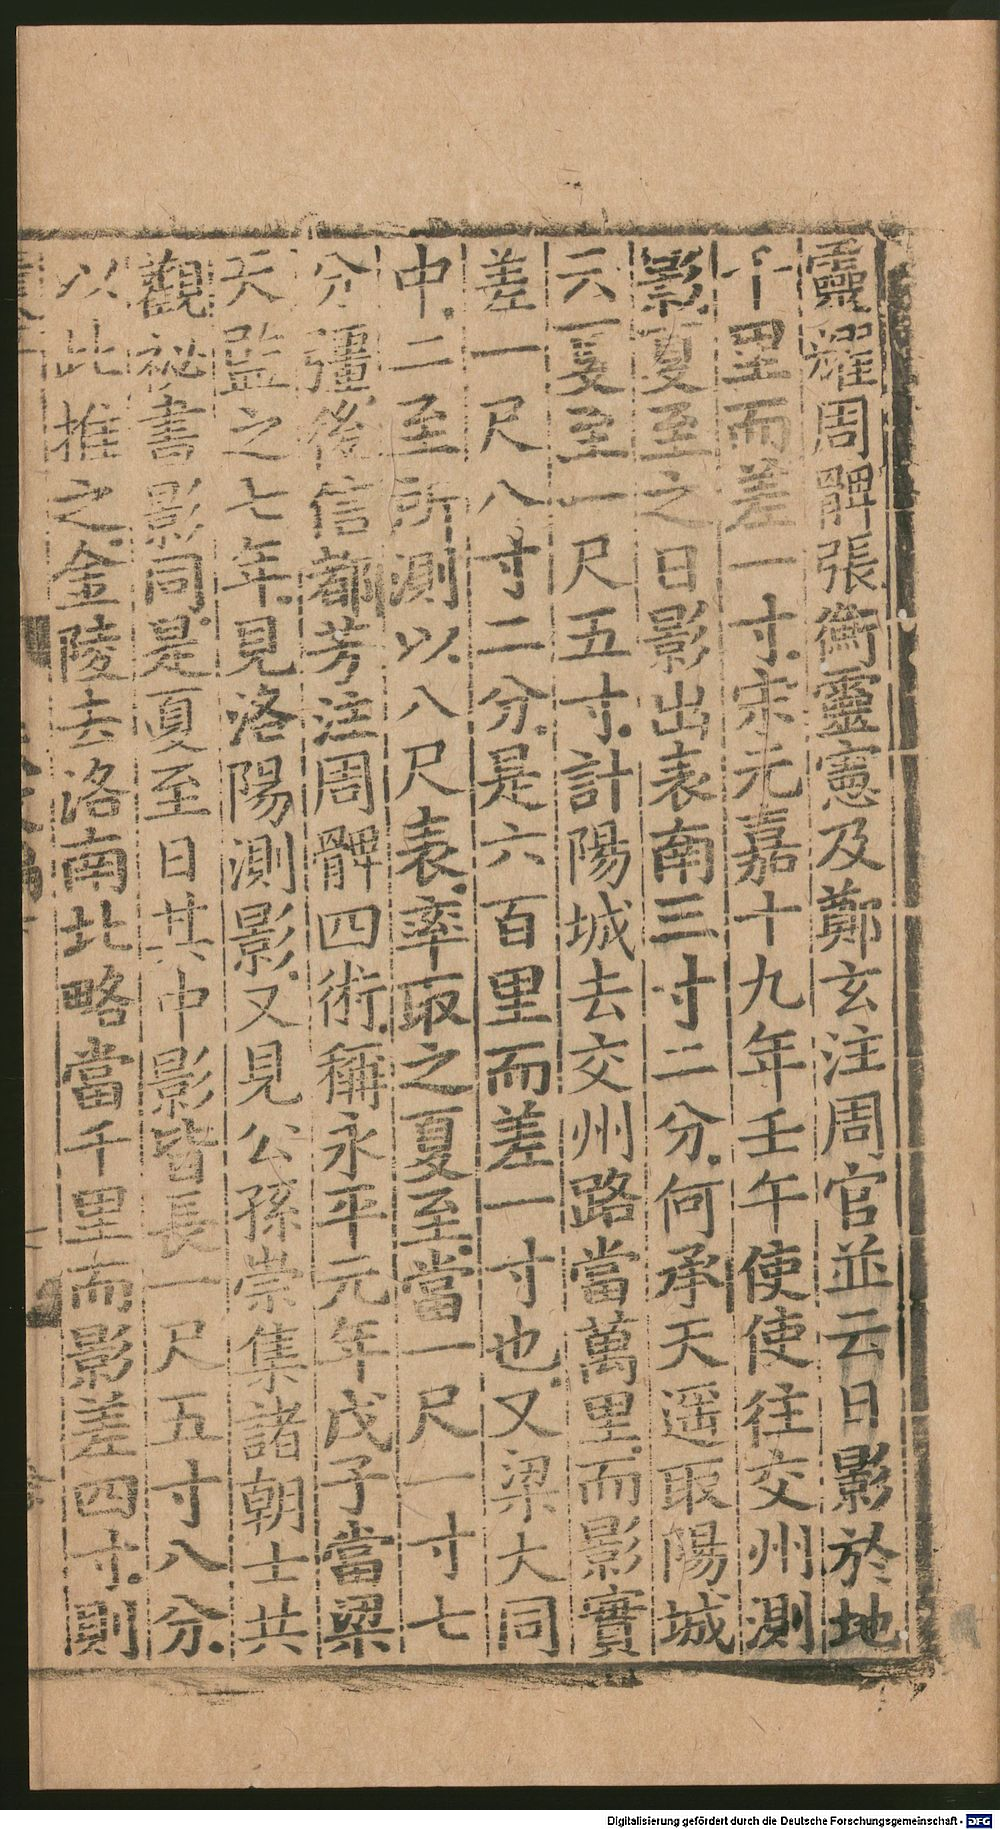 靈耀周髀張衡靈憲及鄭玄注周官並云日影於地
千里而差一寸宋元嘉十九年壬午使使往交州測
影夏至之日影出表南三寸二分何承天遥取陽城
云夏至一尺五寸計陽城去交州路當萬里而影實
差一尺八寸二分是六百里而差一寸也又梁大同
中二至所測以八尺表率取之夏至當一尺一寸七
分彊後信都芳注周髀四術稱永平元年戊子當梁
天監之七年見洛陽測影又見公孫崇集諸朝士共
觀祕書影同是夏至日其中影皆長一尺五寸八分
以此推之金陵去洛南北略當千里而影差四寸則
Digitalisierung gefördert durch die Deutsche Forschungsgemeinschaft - DFG